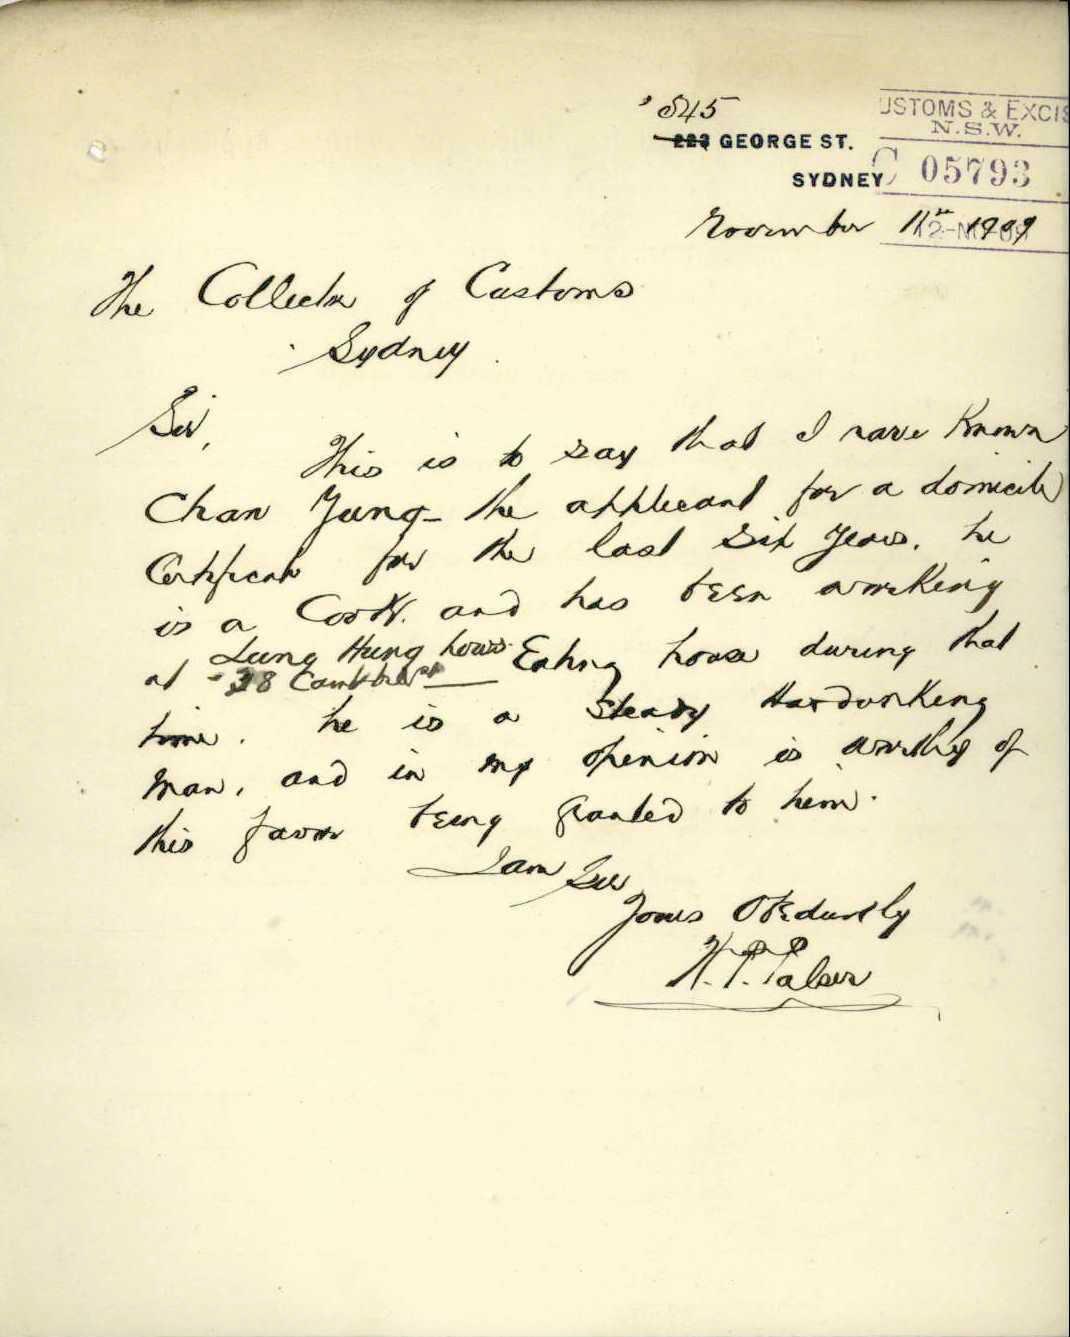 545
223 GEORGE ST.
SYDNEY
USTOMS & EXCIS
N.S.W.
C 05793
12-NO-09
November 11th 1909
The Collector of Customs
Sydney
Sir,
This is to say that I have Known
Chan Yung - the applicant for a domicile
Certificate for the last Six Years. he
is a Cook. and has been working
at Lung Hung house Eating house during that
38 Campbell St
time. he is a Steady Hardworking
man, and in my opinion is worthy of
this favor being granted to him.
I am Sir
Yours Obediently